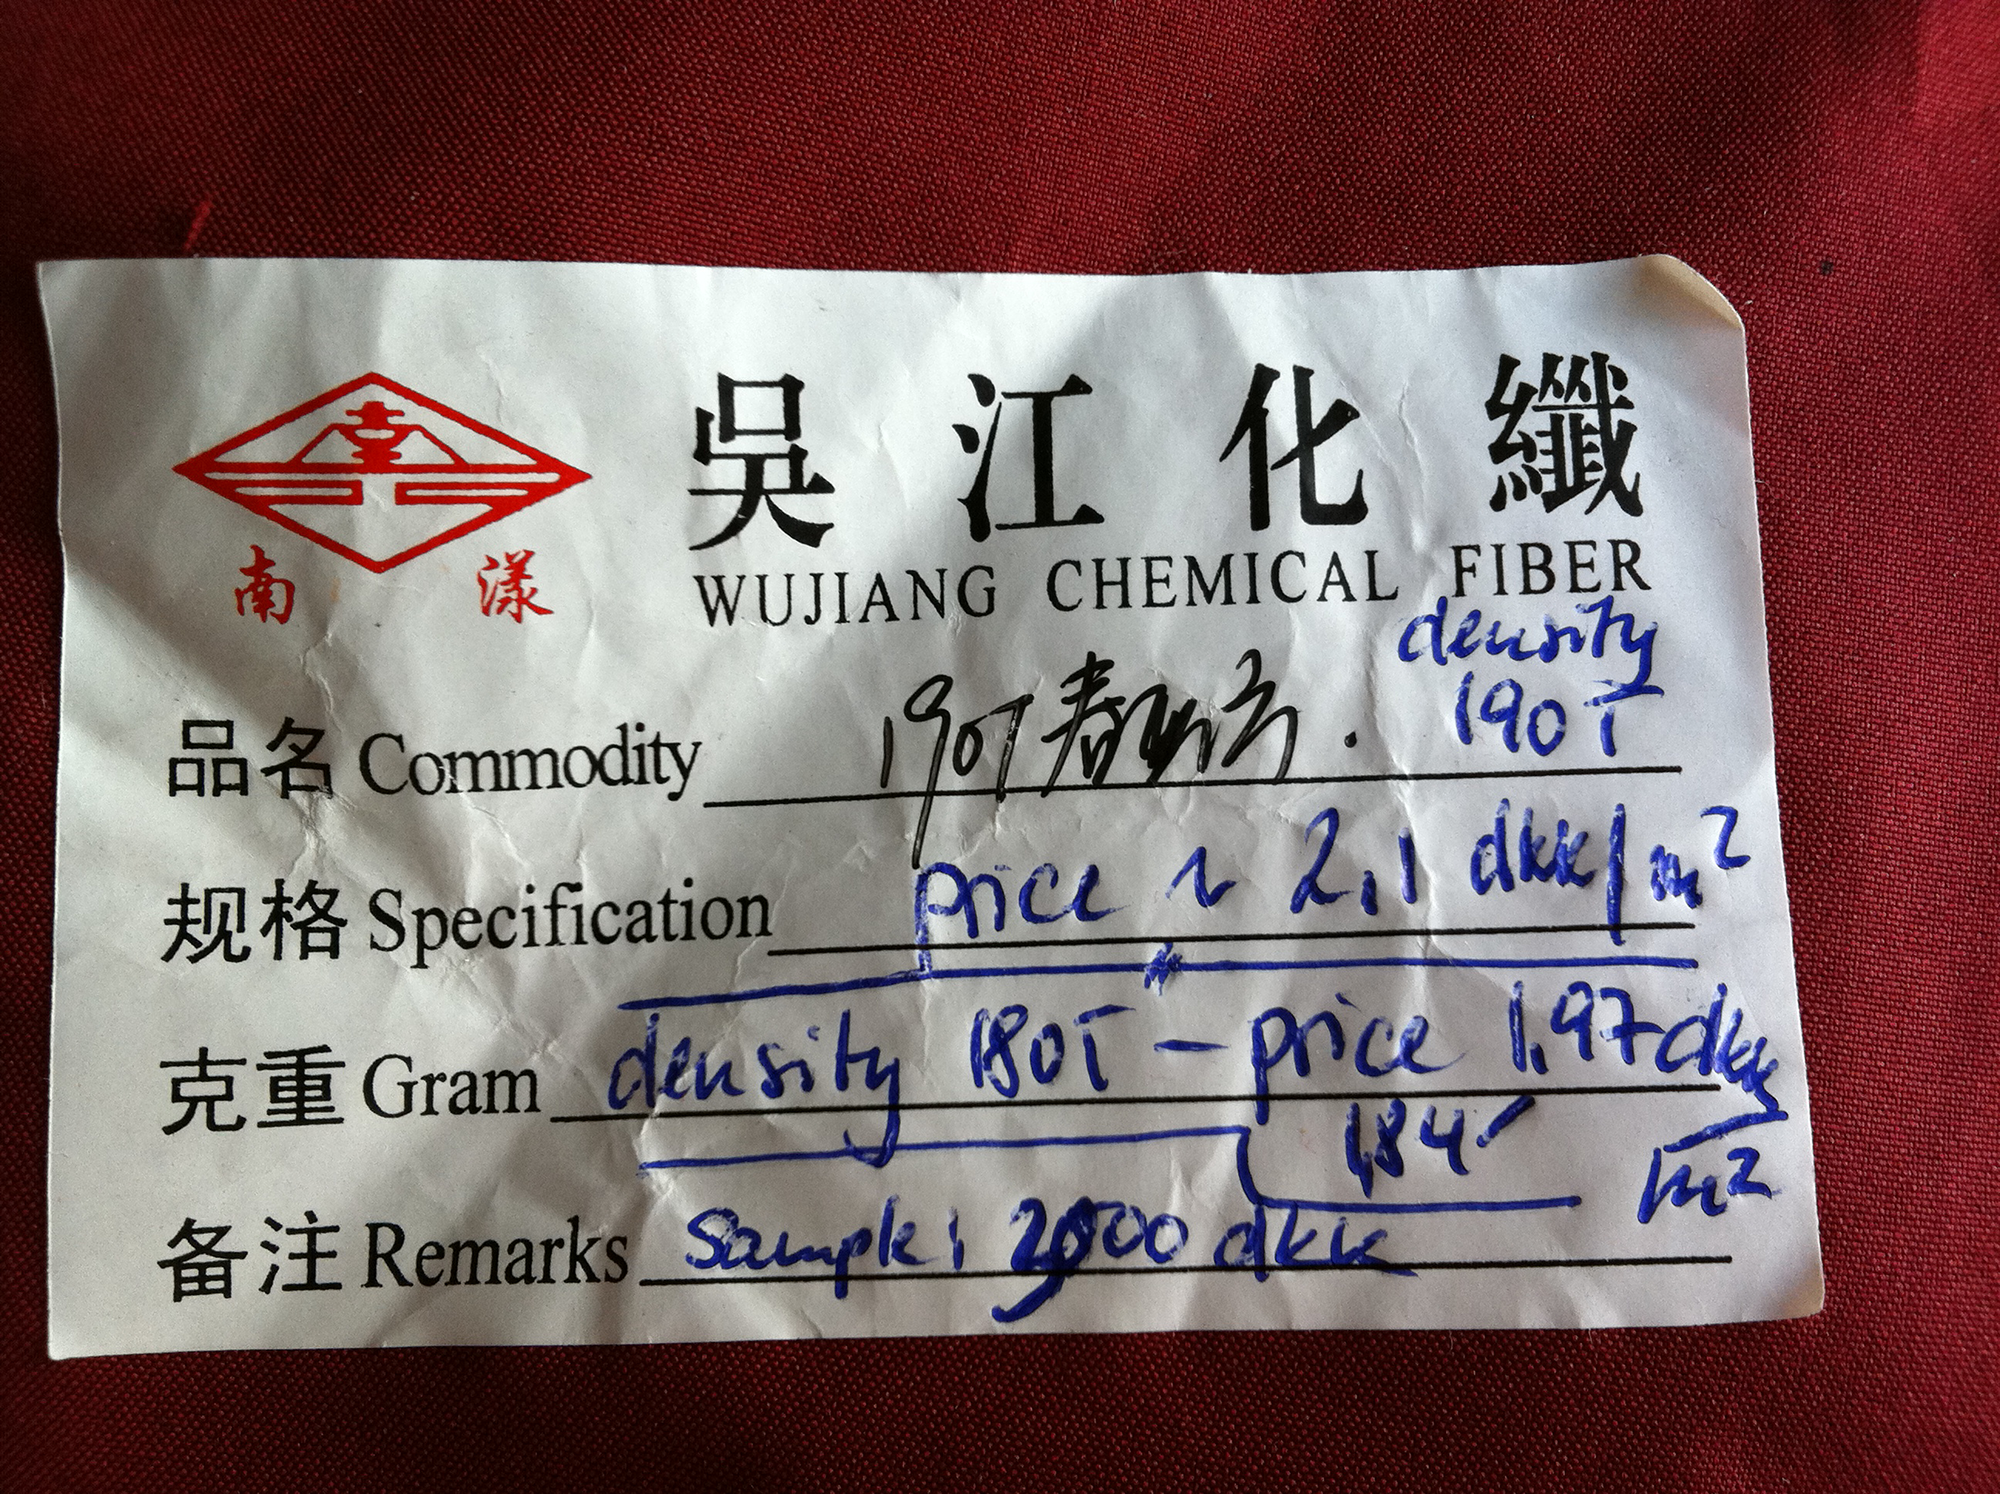 吳江化纖
WUJIANG CHEMICAL FIBER
南漾
density
品名 Commodity 190T春亚纺. 190T
规格 Specification price ~ 2,1 dkk/m²
克重 Gram density 180T - price 1,97 dkk/m²
1,84
备注 Remarks Sample: dkk